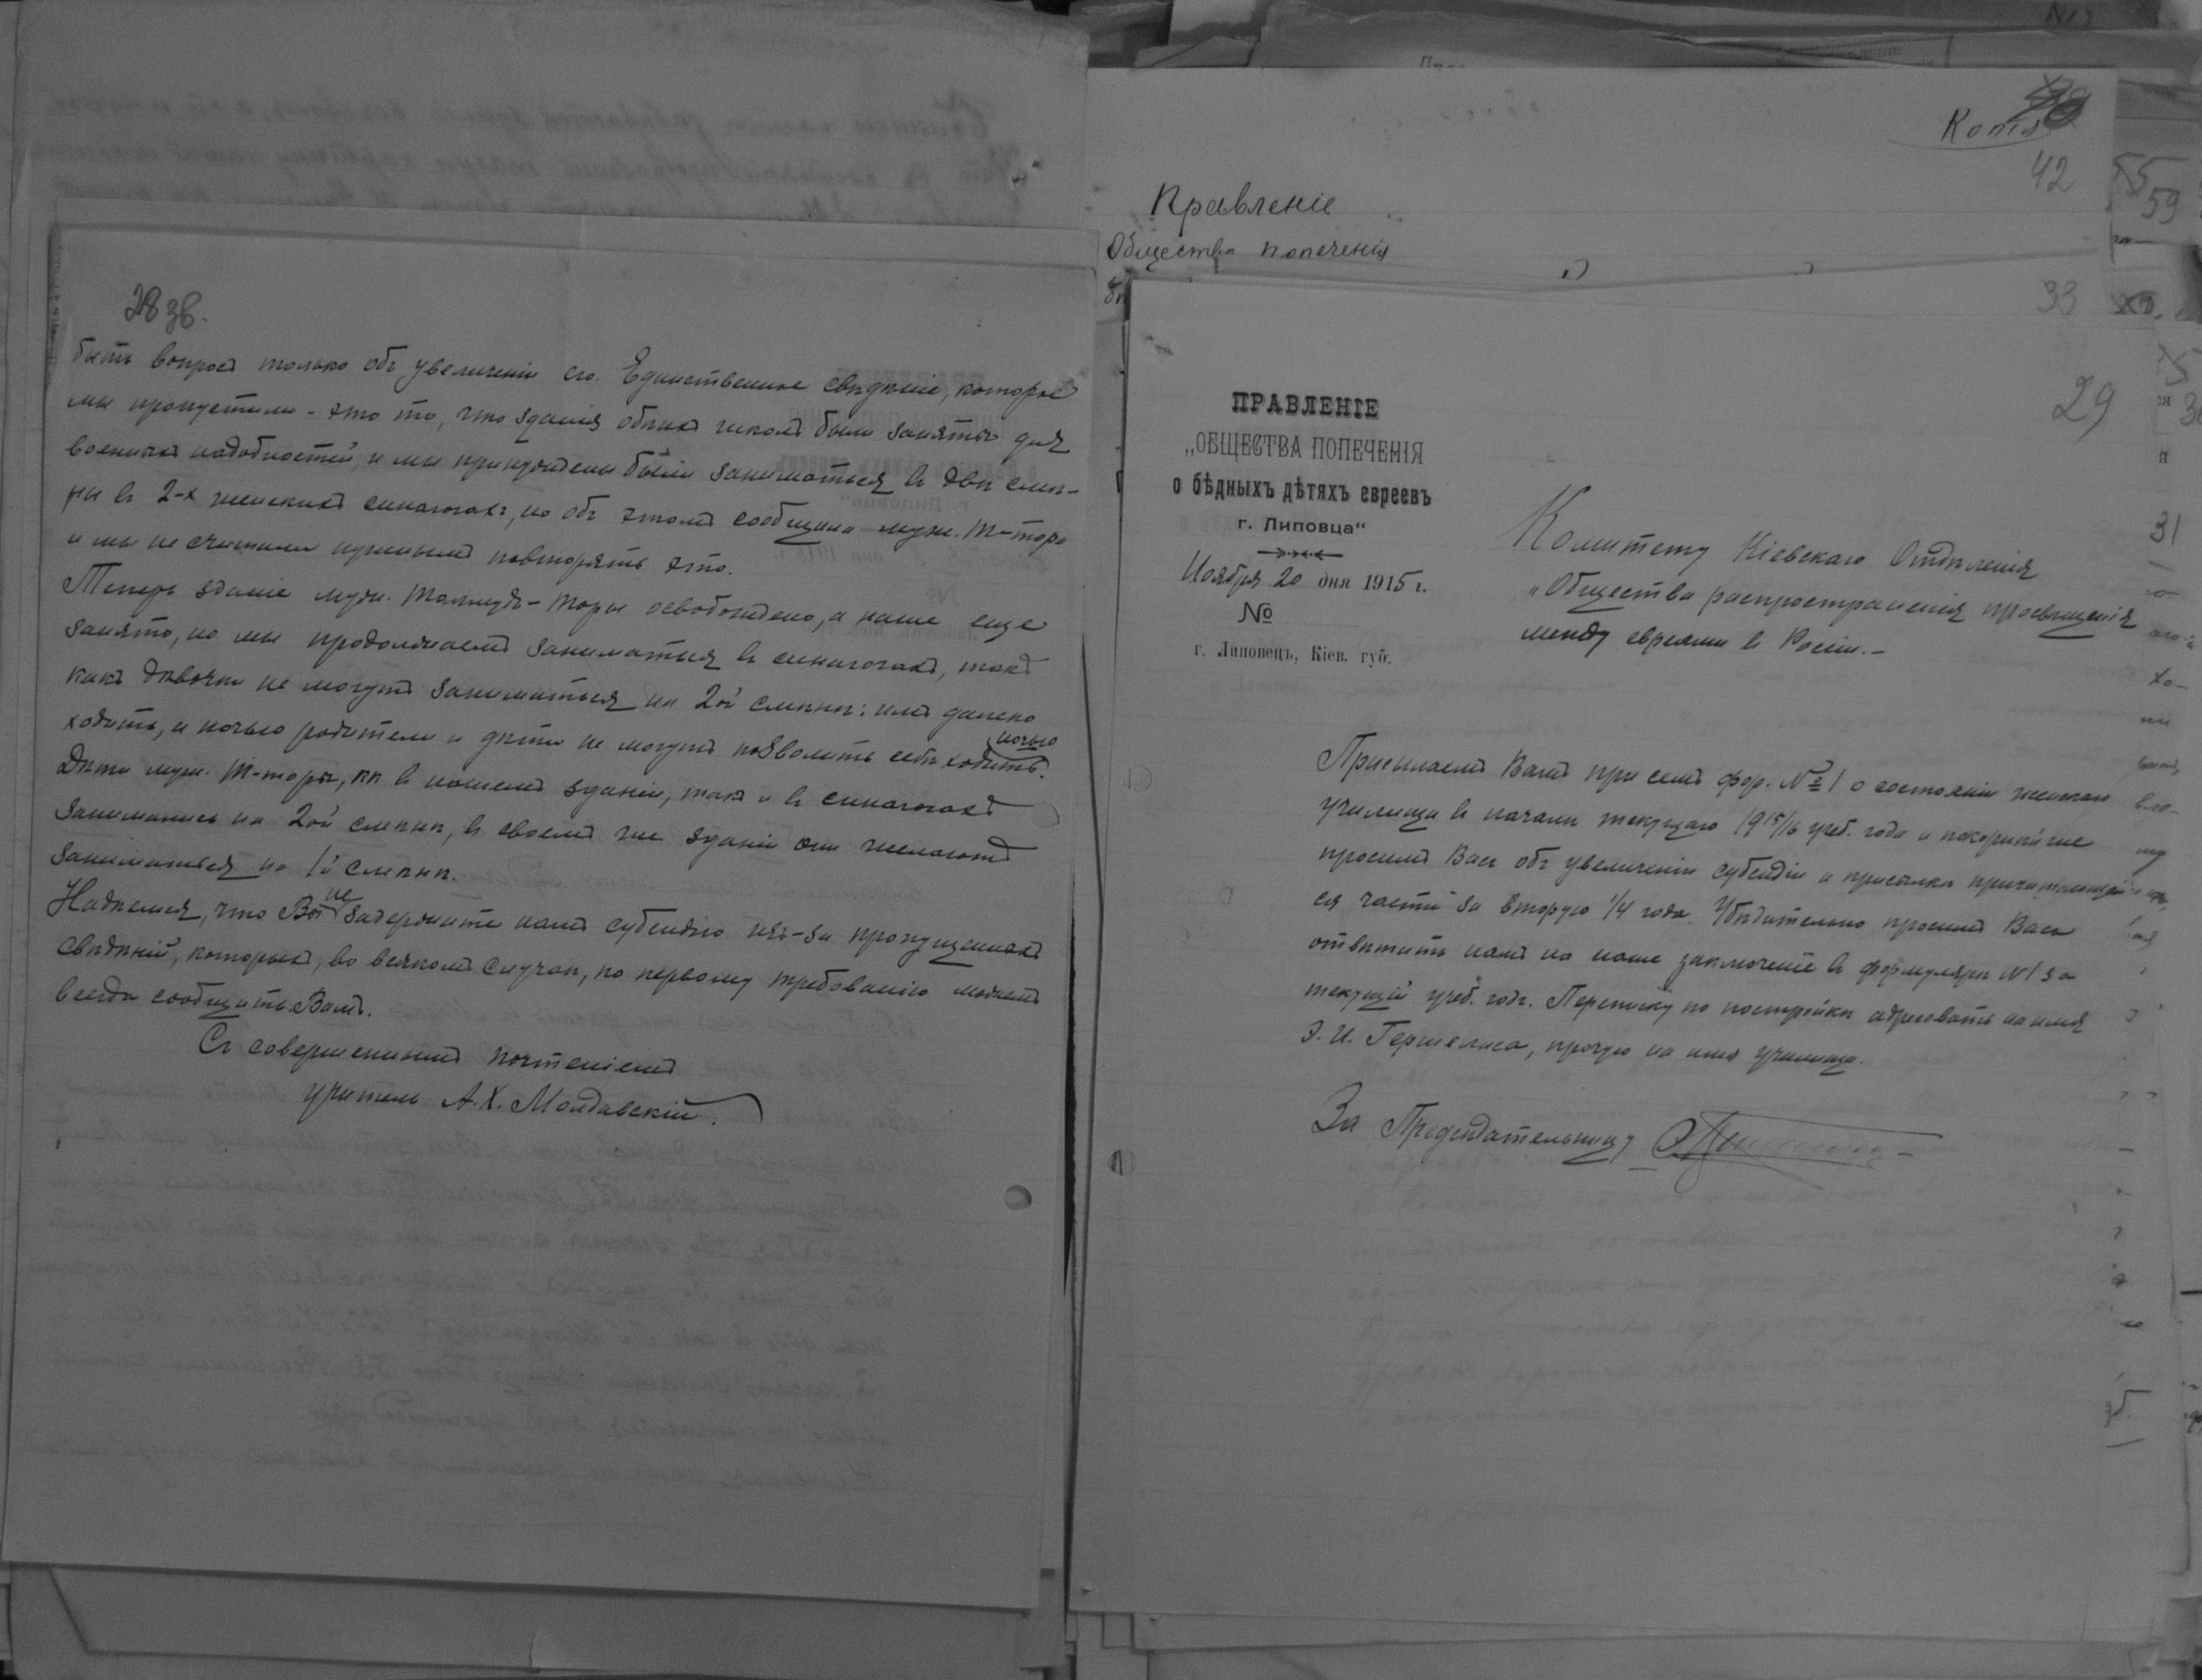 28 зв.
быть вопросъ только объ увеличеніи его. Единственное свѣдѣніе, которое
мы пропустили - это то, что зданія обѣихъ школъ были заняты для
военныхъ надобностей, и мы принуждены были заниматься въ двѣ смѣ-
ны въ 2-х женскихъ синагогахъ, но объ этомъ сообщила муж. Т-тора
и мы не считали нужнымъ повторять это.
Теперь зданіе муж. Талмудъ-Торы освобождено, а наше еще
занято, но мы продолжаемъ заниматься въ синагогахъ, такъ
какъ дѣвочки не могутъ заниматься на 2ой смѣнѣ: имъ далеко
ходить, и ночью родители и дѣти не могутъ позволить себѣ ходить ночью.
Дѣти муж. Т-торы, кк въ нашемъ зданіи, такъ и въ синагогахъ
занимались на 2ой смѣнѣ, въ своемъ же зданіи они желаютъ
заниматься на 1й смѣнѣ.
Надѣемся, что Вы не задержите намъ субсидію изъ-за пропущенныхъ
свѣдѣній, которыя, во всякомъ случаѣ, по первому требованію можемъ
всегда сообщить Вамъ.
Съ совершеннымъ почтеніемъ
учитель А.Х. Молдавскій.
Копія
42
Правленіе
Общества попеченія
55
59
33
29
31
ПРАВЛЕНІЕ
„ОБЩЕСТВА ПОПЕЧЕНІЯ
о бѣдныхъ дѣтяхъ евреевъ
г. Липовца“
Ноября 20 дня 1915 г.
№
г. Липовецъ, Кіев. губ.
Комитету Кіевскаго Отдѣленія
„Общества распространенія просвѣщенія
между евреями въ Россіи.-
Присылаемъ Вамъ при семъ фор. № 1 о состояніи женскаго
училища въ началѣ текущаго 1915/16 учеб. года и покорнѣйше
просимъ Васъ объ увеличеніи субсидіи и присылкѣ причитающей-
ся части за вторую 1/4 года. Убѣдительно просимъ Васъ
отвѣтить намъ на наше заключеніе въ формулярѣ №1 за
текущій учеб. годъ. Переписку по постройкѣ адресовать на имя
Э. И. Гершелиса, прочую на имя училища.
За Предсѣдательницу